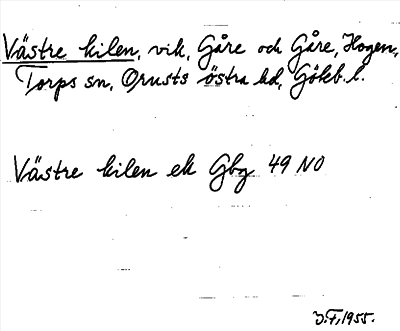 Västre kilen, vik, Gåre och Gåre, Hogen,
Torps sn, Orusts östra hd, Götéb. l.
Västre kilen ek Gbg 49 NO
J.F. 1955.